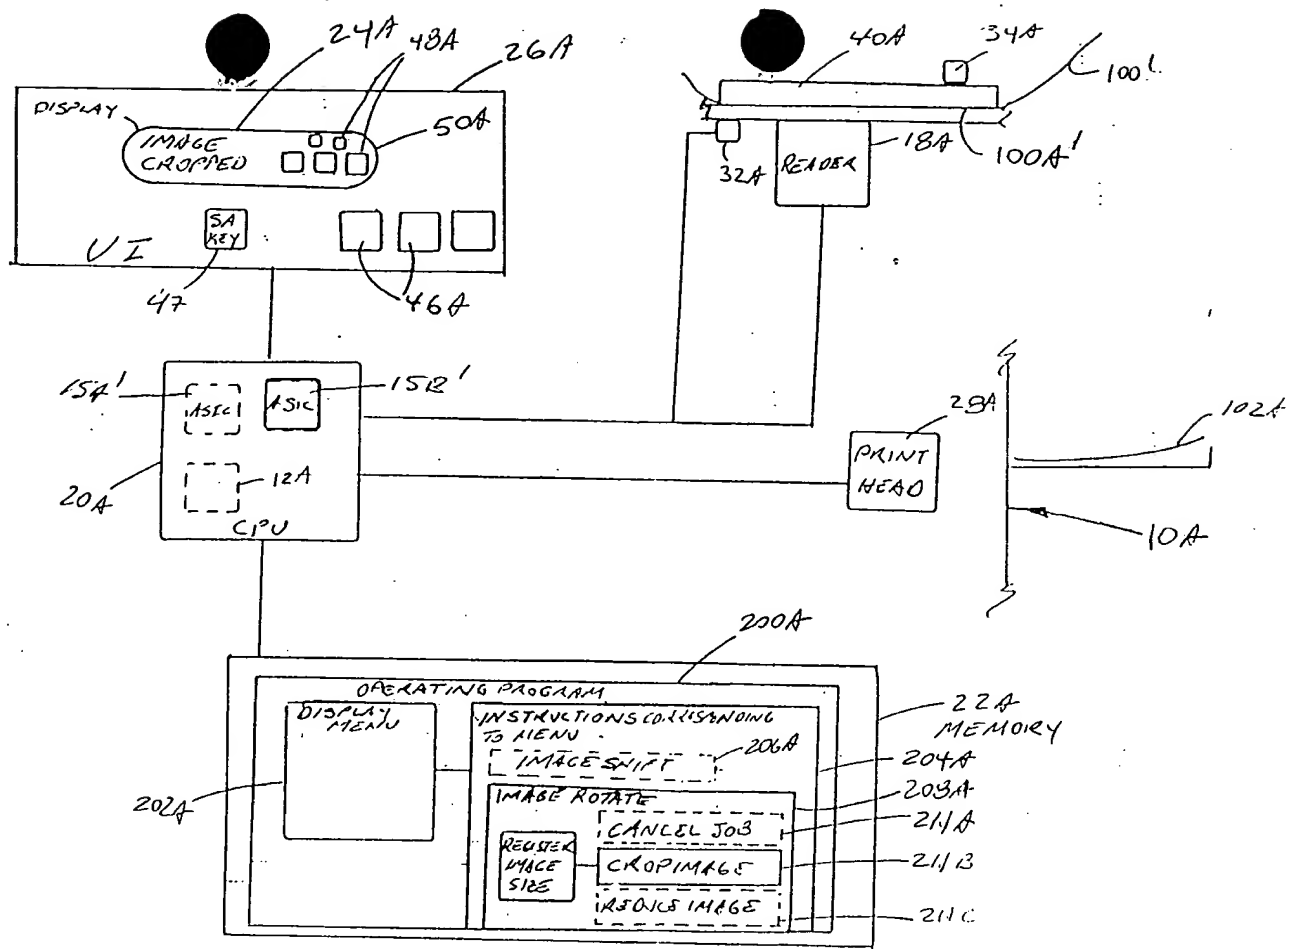 24A
48A
26A
DISPLAY
IMAGE
CROPPED
50A
SA
KEY
UI
47
46A
40A
34A
100'
32A
READER
18A
100A'
15A'
15B'
ASIC
ASIC
12A
20A
CPU
28A
PRINT
HEAD
102A
10A
200A
OPERATING PROGRAM
DISPLAY
MENU
INSTRUCTIONS CORRESPONDING
TO MENU
206A
IMAGE SHIFT
22A
MEMORY
204A
208A
202A
IMAGE ROTATE
CANCEL JOB
211A
REGISTER
IMAGE
SIZE
CROP IMAGE
211B
REDUCE IMAGE
211C